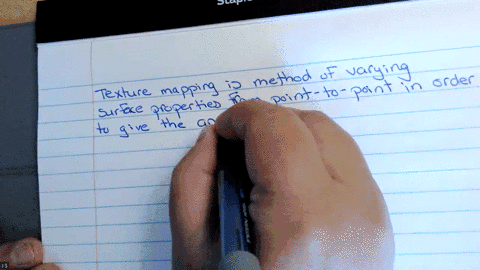 Texture mapping is method of varying
surface properties from point-to-point in order
to give the